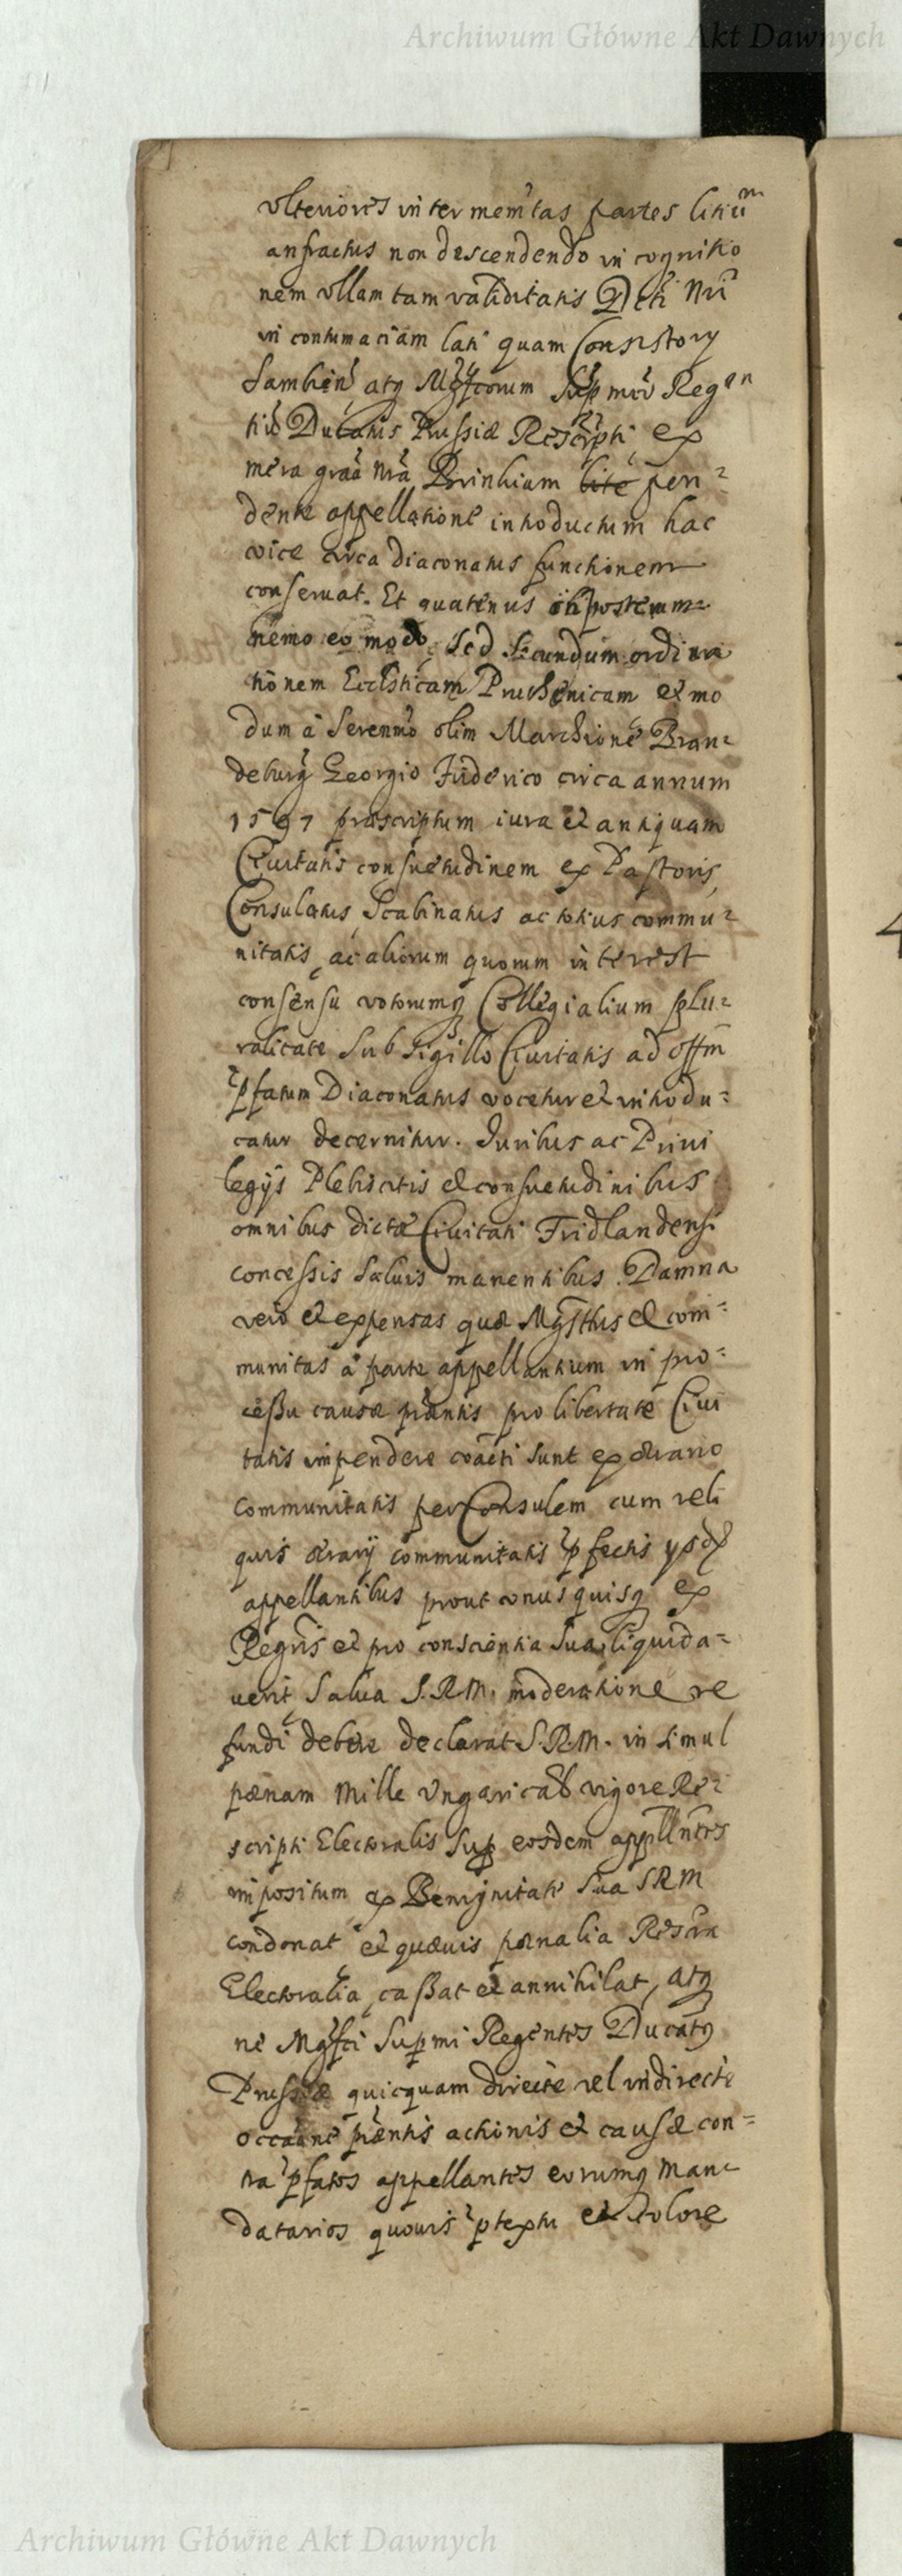 Archiwum Główne Akt Dawnych
ulteriores inter mem̃tas partes litiũm
anfractus non descendendo in cognitio
nem ullam tam validitatis Dcti Nri
in contumaciam lati quam Consistory
Sambien atq Mgfcorum Supmor Regen
tiũ Ducatus Prussiæ Rescripti, ex
mera graa nra Printium lite pen=
dente appellatione introductum hac
vice circa diaconatus functionem
conseruat. Et quatenus in posterum
nemo eo modo, sed secundum ordina
tionem Ecclsticam Pruthenicam et mo
dum à Serenmo olim Marchione Bran=
deburg Georgio Friderico circa annum
1597 præscriptum iura et antiquam
Ciuitatis consuetudinem ex Pastoris,
Consulatus, Scabinatus ac totius commu=
nitatis, ac aliorum quorum interest
consensu votorumq Collegialium plu=
ralitate sub Sigillo Ciuitatis ad offm
pfatum Diaconatus vocetur et introdu=
catur decernitur. Juribus ac Priui
legijs Plebiscitis et consuetudinibus
omnibus dictæ Ciuitati Fridlandensi
concessis saluis manentibus. Damna
vero et expensas quæ Mgsthus et com=
munitas à parte appellantium in pro=
ceßu causæ præntis pro libertate Ciui
tatis impendere coacti sunt ex ærario
communitatis per Consulem cum reli
quis ærarij communitatis pfectis ysdē
appellantibus prout vonusquisq ex
Regris et pro conscientia sua liquida=
uerit salua S.R.M. moderatione re
fundi debere declarat S.R.M. insimul
pœnam mille Vngarical vigore Re=
scripti Electoralis sup eosdem appllntes
impositum ex Benignitate sua SRM
condonat et quæuis pœnalia Rescrta
Electoralia, caßat et annihilat, atq
ne Mgfci Supmi Regentes Ducatq
Prussiæ quicquam directe vel indirecte
occaone præntis actionis et causæ con=
tra pfatos appellantes eorumq man=
datarios quouis ptextu et colore
Archiwum Główne Akt Dawnych